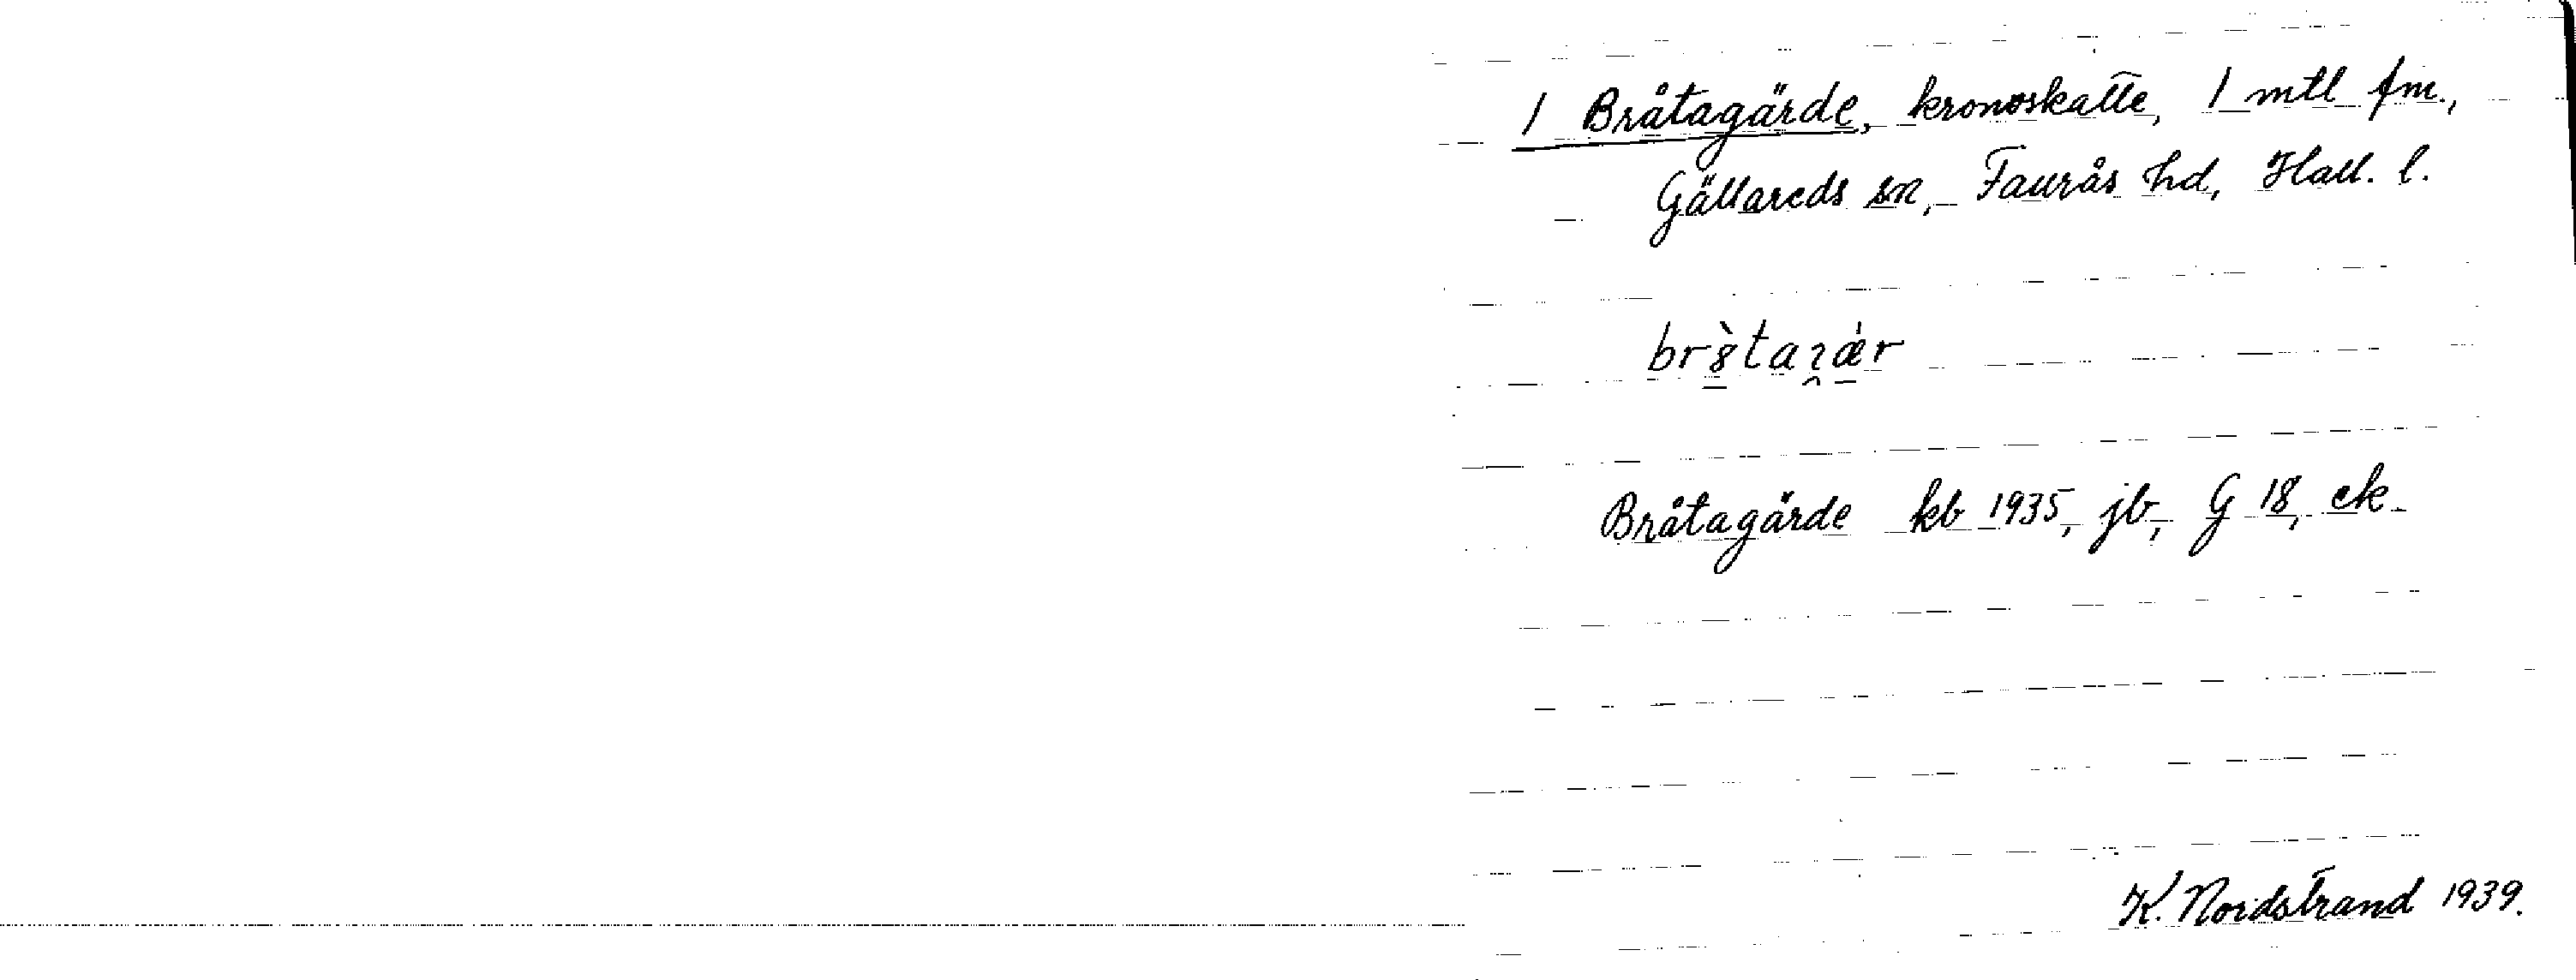 1 Bråtagärde, kronoskatte, 1 mtl fm.,
Gällareds sn, Faurås hd, Hall. l.
Bråtagärde kb 1935, jb, G 18, ek
K. Nordstrand 1939.